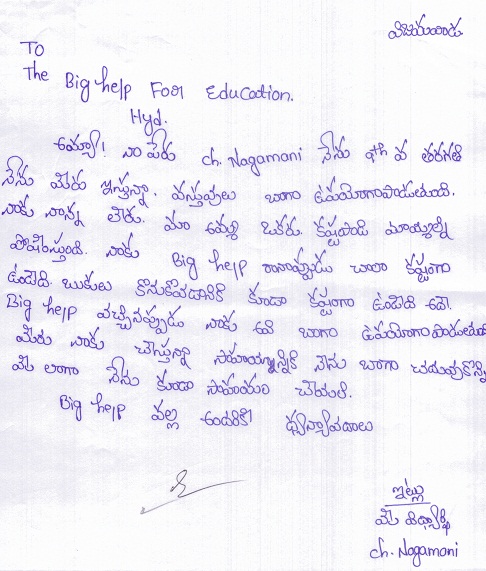 విజయవాడ
To
The Big help For Education.
Hyd.
అమ్మా! నా పేరు ch. Nagamani నేను 9th వ తరగతి
నేను మీరు ఇస్తున్నా. వస్తువులు బాగా ఉపయోగాపాడుతుంది.
నాకు నాన్న లేరు. మా అమ్మ ఒకరు. కష్టపడి మామ్మల్ని
పోషిస్తుంది. నాకు Big help రానప్పుడు చాలా కష్టంగా
ఉండేది. బుకులు కొనుకోవడానికి కూడా కష్టంగా ఉండేది అదే.
Big help వచ్చినప్పుడు నాకు అది బాగా ఉపయోగాపాడుతుంది
మీరు నాకు చేస్తున్నా సాహయన్నికి నేను బాగా చదువుకొన్ని
మీ లాగా నేను కూడా సాహయం చేయాలి.
Big help వల్ల అందరికి ధ్యన్యావదాలు
ఇట్లు
మీ విధ్యార్థి
ch. Nagamani